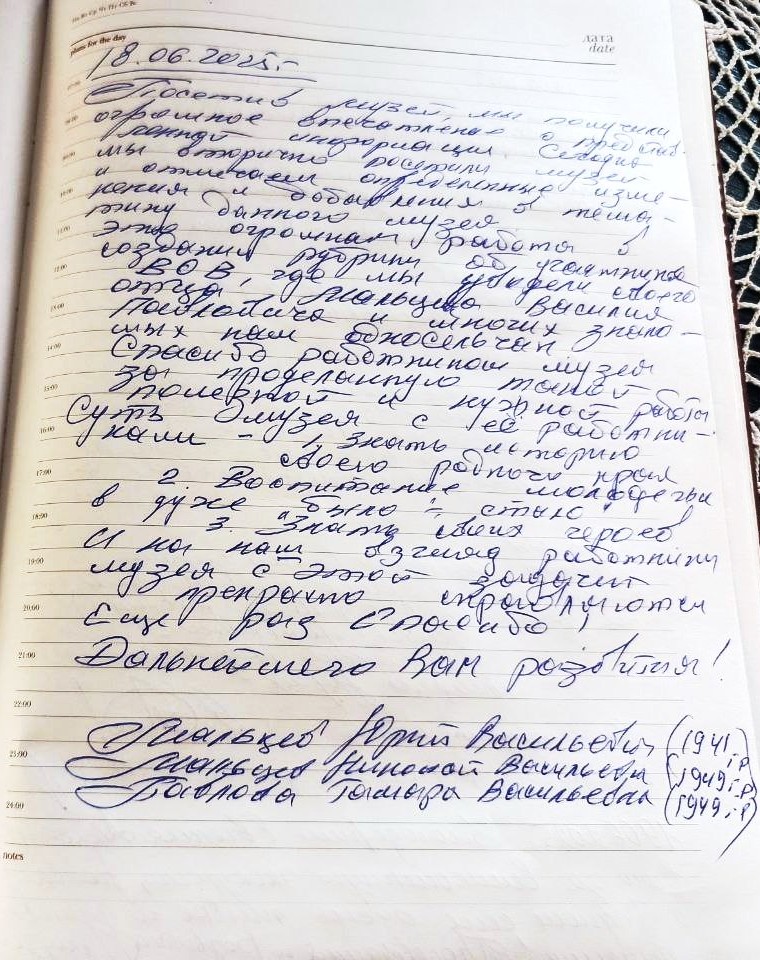 Пн Вт Ср Чт Пт Сб Вс
plans for the day
дата
date
18.06.2025г.
Посетив музей, мы получили
огромное впечатление о представ-
ленной информации. Сегодня
мы вторично посетили музей
и отмечаем определенные изме-
нения и добавления в тема-
тику данного музея.
Это огромная работа в
создании рубрики об участниках
ВОВ, где мы увидели своего
отца, Мальцева Василия
Павловича и многих знако-
мых нам односельчан
Спасибо работникам музея
за проделанную такой
полезной и нужной работы
Суть музея с её работни-
ками - 1. Знать историю
своего родного края
2. Воспитание молодежи
в духе "было - стало"
3. Знать своих героев
И на наш взгляд работники
музея с этой задачей
прекрасно справляются
Еще раз Спасибо!
Дальнейшего Вам развития!
Мальцев Юрий Васильевич (1941 г.р
Мальцев Николай Васильевич (1949 г.р)
Павлова Тамара Васильевна (1949 г.р
12:00
13:00
14:00
15:00
16:00
17:00
18:00
19:00
20:00
21:00
22:00
23:00
24:00
notes